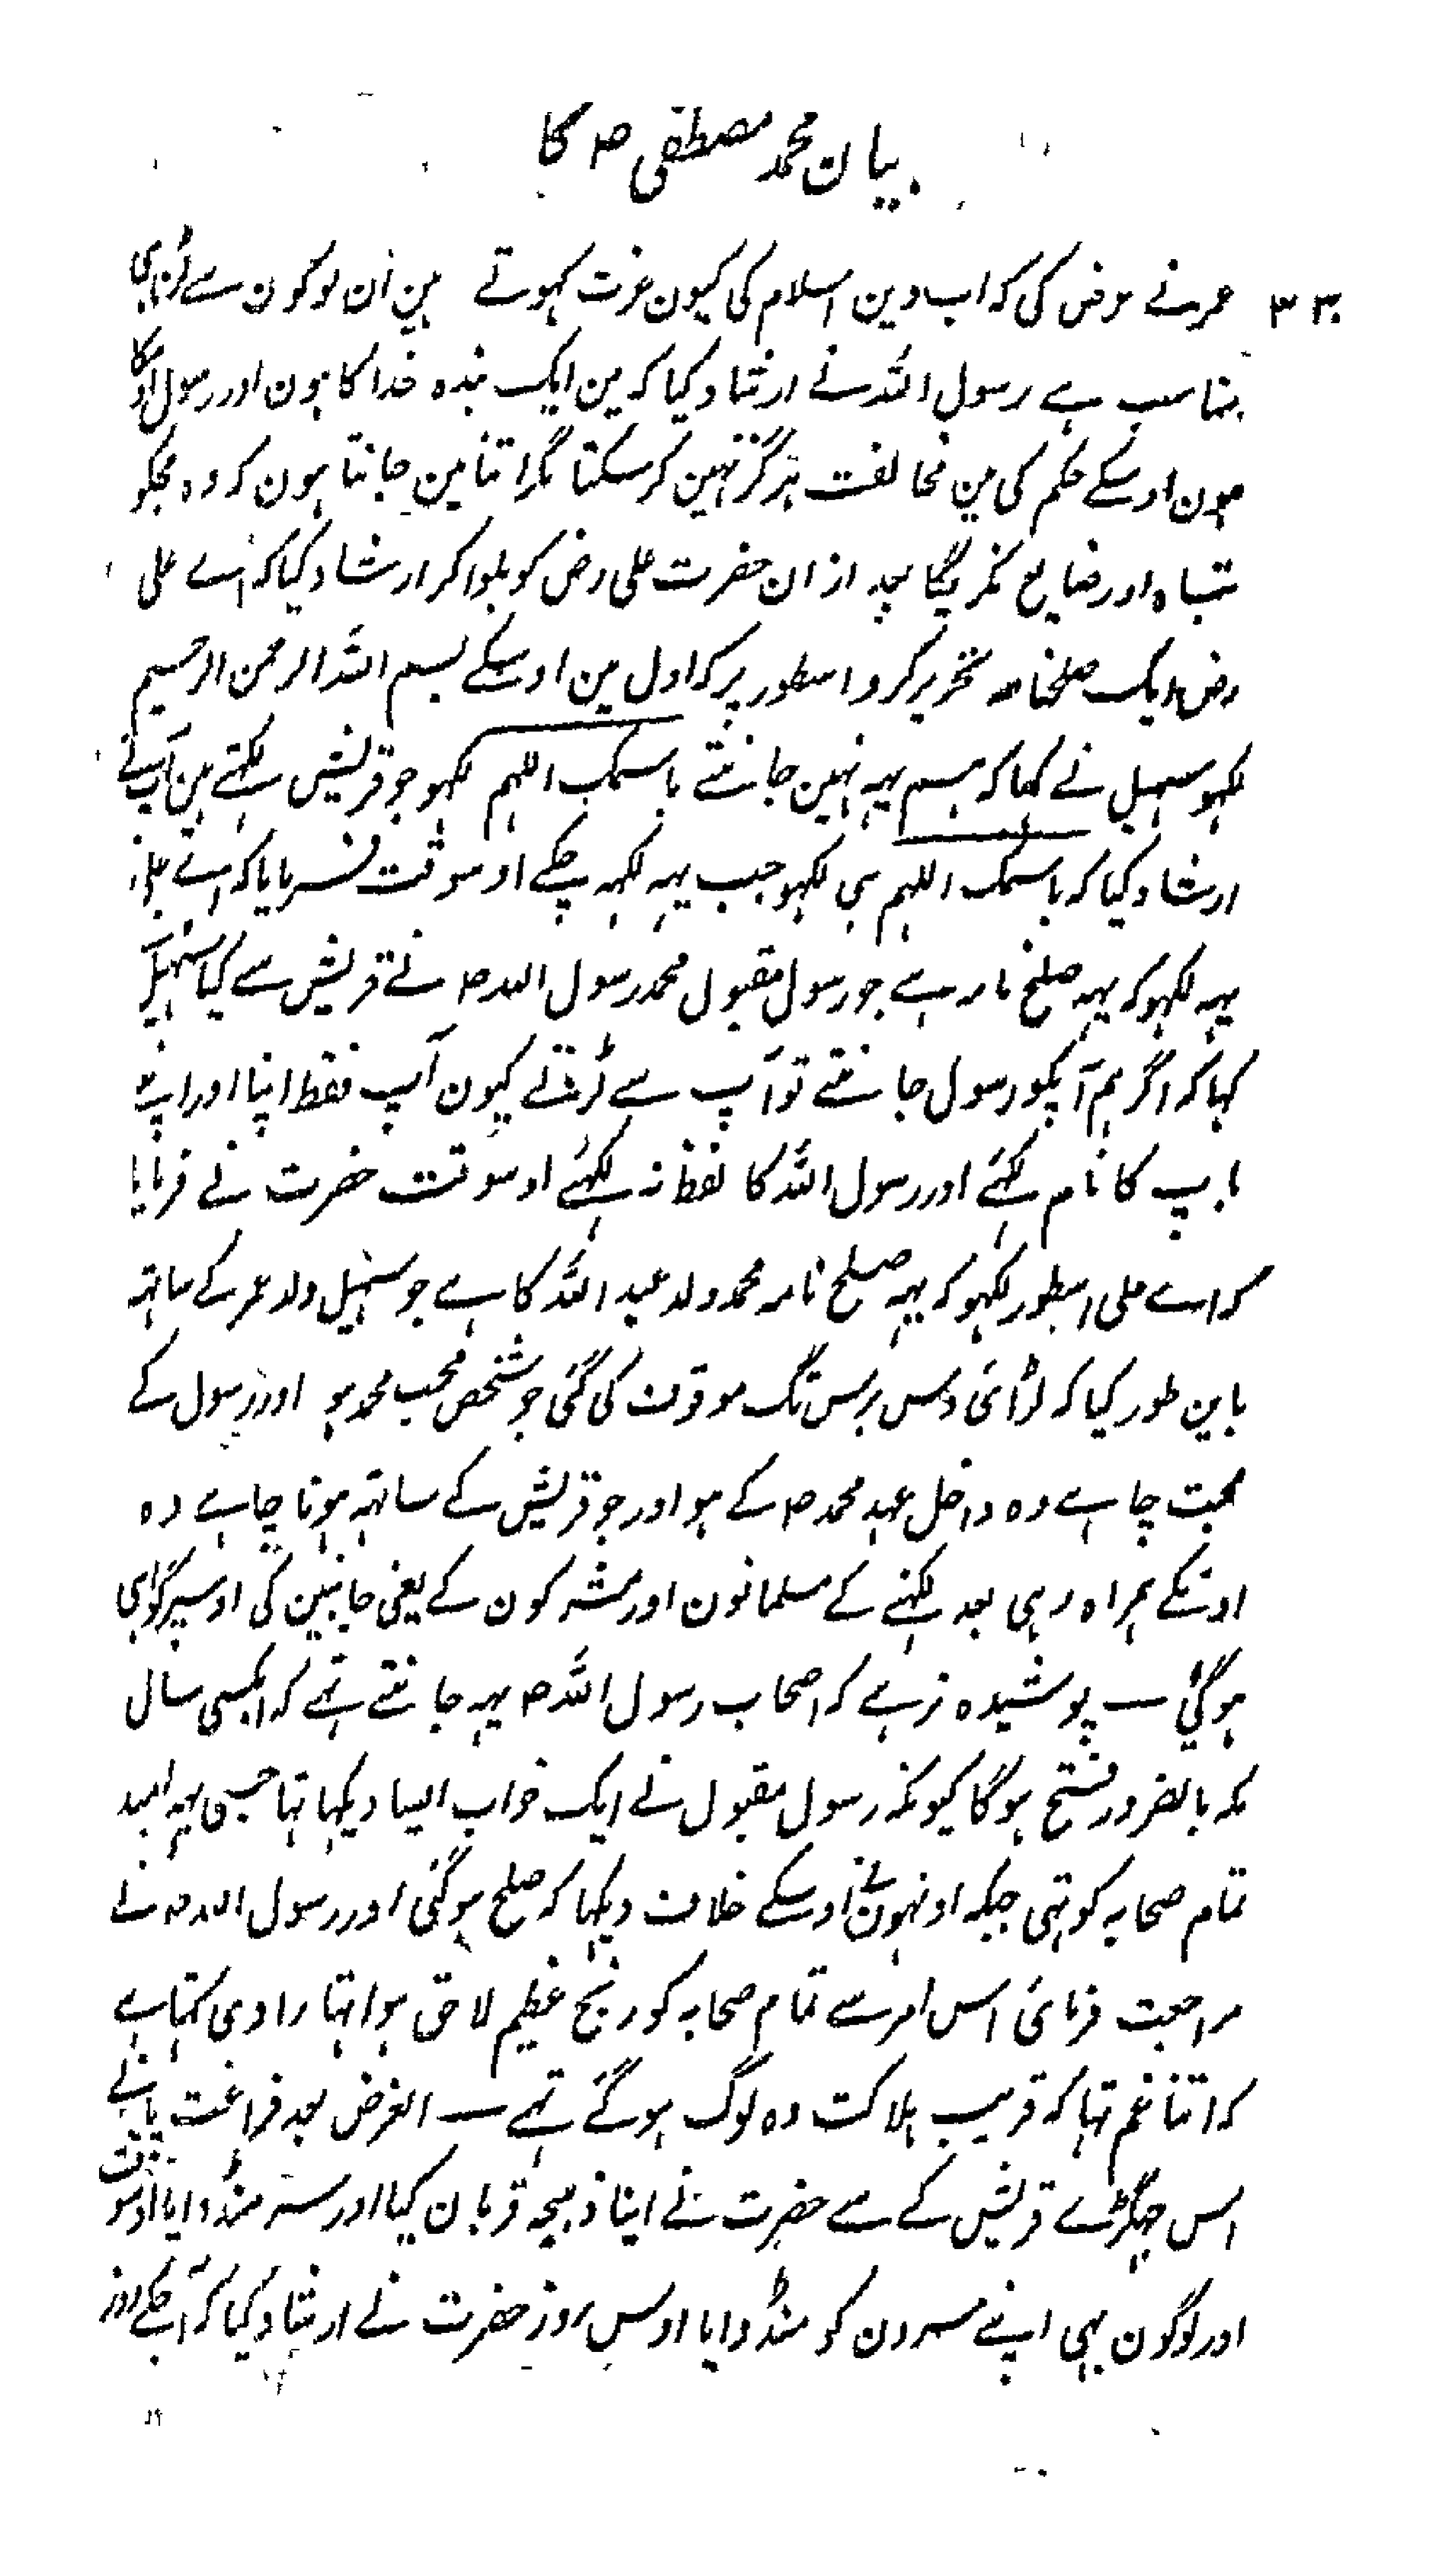 بیان محمد مصطفی ص کا
عمر نے عرض کی کہ اب دین اسلام کی کیون عزت کہوتے ہین ان لوگون سے لڑناہی
مناسب ہے رسول اللہ نے ارشاد کیا کہ مین ایک بندہ خدا کا ہون اور رسول اوسکا
ہون اوسکے حکم کی مین مخالفت ہرگز نہین کرسکتا مگر اتنا مین جانتا ہون کہ وہ مجکو
تباہ اور ضایع نکریگا بعد ازان حضرت علی رض کو بلواکر ارشاد کیا کہ اے علی
رض ایک صلحنامہ تحریر کرو اسطور پر کہ اول مین اوسکے بسم اللہ الرحمن الرحیم
لکہو سہیل نے کہا کہ ہم یہہ نہین جانتے باسمک اللہم لکہو جو قریش لکہتے ہین آپ نے
ارشاد کیا کہ باسمک اللہم ہی لکہو جب یہہ لکہہ چکے اوسوقت فرمایا کہ اے علی
یہہ لکہو کہ یہہ صلح نامہ ہے جو رسول مقبول محمد رسول اللہ ص نے قریش سے کیا سہیل
کہا کہ اگر ہم آپکو رسول جانتے تو آپ سے لڑتے کیون آپ فقط اپنا اور اپنے
باپ کا نام لکہئے اور رسول اللہ کا لفظ نہ لکہئے اوسوقت حضرت نے فرمایا
کہ اے علی اسطور لکہو کہ یہہ صلح نامہ محمد ولد عبد اللہ کا ہے جو سہیل ولد عمر کے ساتہہ
باین طور کیا کہ لڑائی دس برس تک موقوف کی گئی جو شخص محب محمد ہو اور رسول کے
محبت چاہے وہ داخل عہد محمد ص کے ہو اور جو قریش کے ساتہہ ہونا چاہے وہ
اونکے ہمراہ رہی بعد لکہنے کے مسلمانون اور مشرکون کے یعنی جانبین کی اوسپر گواہی
ہوگئی ــ پوشیدہ نرہے کہ اصحاب رسول اللہ ص یہہ جانتے تہے کہ ایکسی سال
مکہ بالضرور فتح ہوگا کیونکہ رسول مقبول نے ایک خواب ایسا دیکہا تہا جس یہہ امید
تمام صحابہ کو تہی جبکہ اونہون نے اوسکے خلاف دیکہا کہ صلح ہوگئی اور رسول اللہ ص نے
مراجعت فرمائی اس امر سے تمام صحابہ کو رنج عظیم لاحق ہوا تہا راوی کہتا ہے
کہ اتنا غم تہا کہ قریب ہلاکت وہ لوگ ہوگئے تہے ــ الغرض بعد فراغت پانے
اس جہگڑے قریش کے سے حضرت نے اپنا ذبیحہ قربان کیا اور سر منڈوایا اوسوقت
اور لوگون بہی اپنے سرون کو منڈوایا اوس روز حضرت نے ارشاد کیا کہ آجکے روز